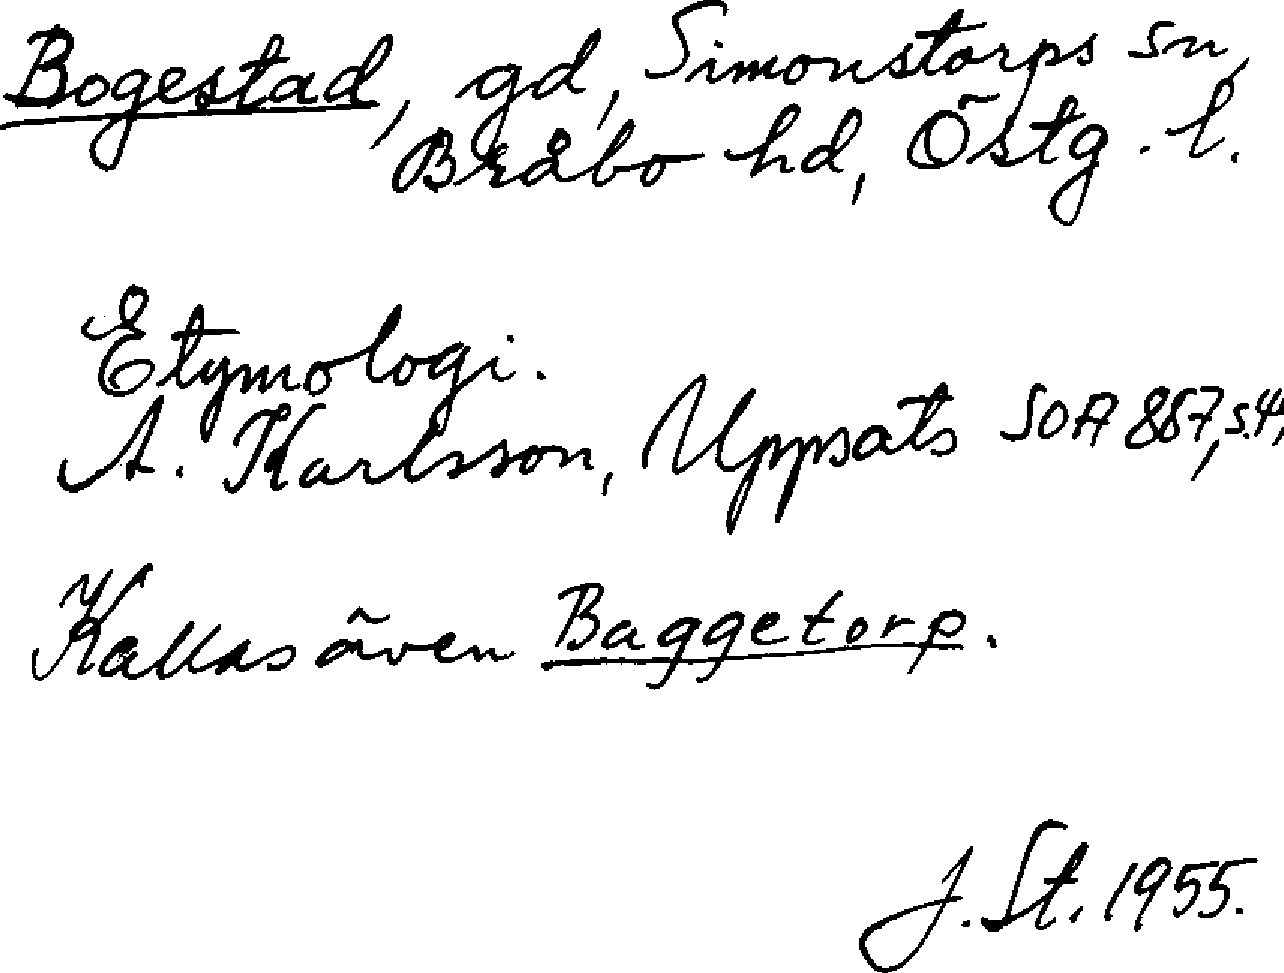 Bogestad, gd, Simonstorps sn,
Bråbo hd, Östg. l.
Etymologi.
A. Karlsson, Uppsats SOA 887, s. 4,
Kallas även Baggetorp.
J. St. 1955.